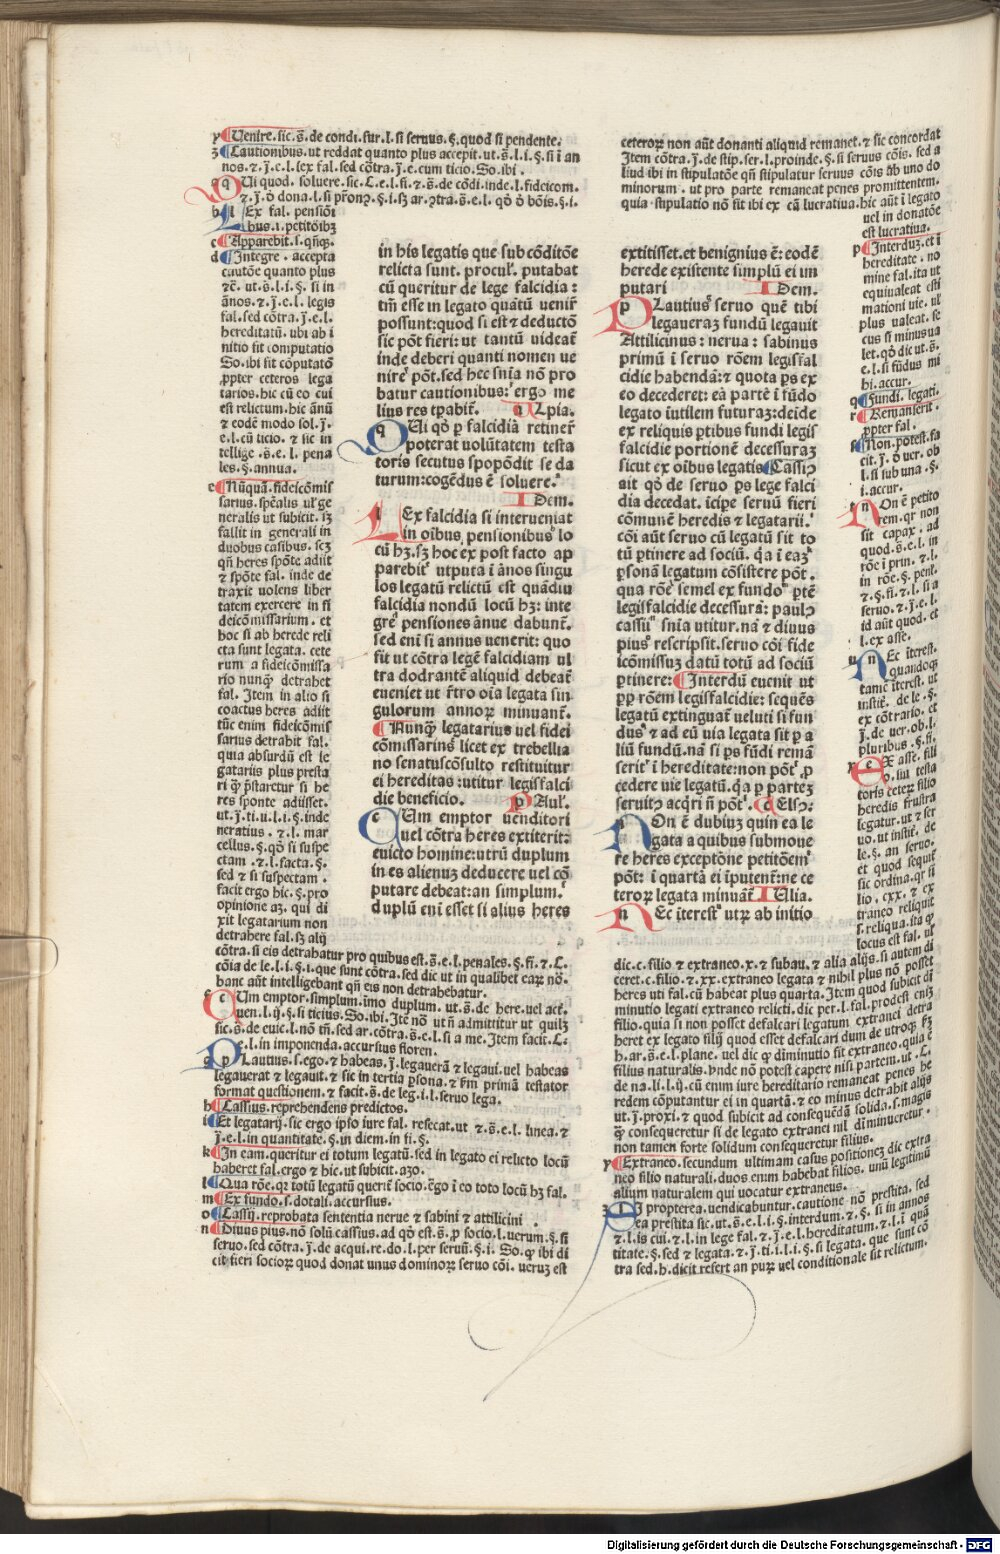 y Uenire.sic.s̄.de condi.fur.l.si seruus.§.quod si pendente.
z Cautionibus.ut reddat quanto plus accepit.ut.s̄.l.i.§.si ī an
nos.⁊.j̄.e.l.lex fal.sed cōtra.j̄.e.cum ticio.So.ibi.
a q Ui quod.soluere.sic.C.e.l.fi.⁊.s̄.de cōdi.inde.l.fideicom.
b l Ex fal. pensiōi
bus.i.petitōibꝫ
c Apparebit.s.qñqꝫ.
d Integre.accepta
cautōe quanto plus
⁊c̄.ut.s̄.l.i.§.si in
ānos.⁊.j̄.e.l.legis
fal.sed cōtra.j̄.e.l.
hereditatū.ubi ab i
nitio fit computatio
So.ibi fit cōputatō
ꝓpter ceteros lega
tarios.hic cū eo cui
est relictum.hic ānū
⁊ eodē modo sol.j̄.
e.l.cū ticio.⁊ sic in
tellige.s̄.e.l.pena
les.§.annua.
e Nūquā.fideicōmis
sarius.spēalis ul'ge
neralis ut subicit.sꝫ
fallit in generali in
duobus casibus.scꝫ
qñ heres spōte adiit
⁊ spōte fal.inde de
traxit uolens liber
tatem exercere in fi
deicōmissarium.et
hoc si ab herede reli
cta sunt legata.cete
rum a fideicōmissa
rio nunqꝫ detrahet
fal.Item in alio si
coactus heres adiit
tūc enim fideicōmis
sarius detrahit fal.
quia absurdū est le
gatariis plus presta
ri qꝫ p̄staretur si he
res sponte adiisset.
ut.j̄.ti.u.l.i.§.inde
neratius.⁊.l.mar
cellus.§.qō si suspe
ctam.⁊.l.facta.§.
sed ⁊ si suspectam.
facit ergo hic.§.pro
opinione aꝫ.qui di
xit legatarium non
detrahere fal.sꝫ alij
cōtra.si eis detrahatur pro quibus est.s̄.e.l.penales.§.fi.⁊.C.
cōia de le.l.i.§.i.que sunt cōtra.sed dic ut in qualibet earꝫ nō.
hanc aūt intelligebant qñ eis non detrahebatur.
f c Um emptor.simplum.īmo duplum.ut.s̄.de here.uel act.
uen.l.ij.§.si ticius.So.ibi.Itē nō ut ñ admittitur ut quilꝫ
sic.s̄.de euic.l.nō tm̄.sed ar.cōtra.s̄.e.l.si a me.Item facit.C.
e.l.in imponenda.accursius floren.
g p Lautius.s.ego.⁊ habeas.j̄.legauerā ⁊ legaui.uel habeas
legauerat ⁊ legauit.⁊ sic in tertia ꝑsona.⁊ fm̄ primā testator
format questionem.⁊ facit.s̄.de leg.i.l.seruo lega.
h Cassius.reprehendens predictos.
i Et legatarij.sic ergo ipso iure fal.resecat.ut ⁊.s̄.e.l.linea.⁊
j̄.e.l.in quantitate.§.in diem.in fi.§.
k In eam.queritur ei totum legatū.sed in legato ei relicto locū
haberet fal.ergo ⁊ hic.ut subicit.azo.
l Qua rōe.qꝛ totū legatū querit̄ socio.ēgo ī eo toto locū hꝫ fal.
m Ex fundo.s.dotali.accursius.
o Cassij.reprobata sententia nerue ⁊ sabini ⁊ attilicini.
n Diuus pius.nō solū cassius.ad qō est.s̄.ꝓ socio.l.uerum.§.si
seruo.sed cōtra.j̄.de acqui.re.do.l.per seruū.§.i.So.ꝙ ibi di
cit fieri socioꝝ quod donat unus dominoꝝ seruo cōi.ueruꝫ est
in his legatis que sub cōditōe
relicta sunt.procul'.putabat
cū queritur de lege falcidia:
tm̄ esse in legato quātū uenir̄
possunt:quod si est ⁊ deductō
sic pōt fieri:ut tantū uideat̄
inde deberi quanti nomen ue
nire pōt.sed hec sn̄ia nō pro
batur cautionibus:ergo me
lius res tꝑabit̄. Ulpia.
q Ui qō ꝑ falcidiā retiner̄
poterat uolūtatem testa
toris secutus spopōdit se da
turum:cogēdus ē soluere.
Idem.
l Ex falcidia si interueniat
in oibus pensionibus lo
cū hꝫ.sꝫ hoc ex post facto ap
parebit utputa ī ānos singu
los legatū relictū est quādiu
falcidia nondū locū hꝫ:inte
gre pensiones ānue dabunt̄.
sed enī si annus uenerit:quo
fit ut cōtra legē falcidiam ul
tra dodrantē aliquid debeat̄
eueniet ut r̄tro oīa legata sin
gulorum annoꝝ minuant̄.
Nunqꝫ legatarius uel fidei
cōmissarius licet ex trebellia
no senatuscōsulto restituitur
ei hereditas:utitur legisfalci
die beneficio. Paul'.
c Um emptor uenditori
uel cōtra heres extiterit:
euicto homine:utrū duplum
in es alienuꝫ deducere uel cō
putare debeat:an simplum.
duplū enī esset si alius heres
ceteroꝝ non aūt donanti aliquid remanet.⁊ sic concordat
Item cōtra.j̄.de stip.ser.l.proinde.§.si seruus cōis.sed a
liud ibi in stipulatōe qñ stipulatur seruus cōis ab uno do
minorum.ut pro parte remaneat penes promittentem.
quia stipulatio nō fit ibi ex cā lucratiua.hic aūt ī legato
uel in donatōe
est lucratiua.
extitisset.et benignius ē:eodē
herede existente simplū ei im
putari Idem.
p Lautius seruo quē tibi
legaueraꝫ fundū legauit
Attilicinus:nerua:sabinus
primū ī seruo rōem legisf̄al
cidie habendā:⁊ quota ps ex
eo decederet:eā partē ī fūdo
legato īutilem futuraꝫ:deīde
ex reliquis ꝑtibus fundi legis
falcidie portionē decessuraꝫ
sicut ex oibus legatis Cassi⁹
ait qō de seruo ps lege falci
dia decedat.īcipe seruū fieri
cōmunē heredis ⁊ legatarii.
cōi aūt seruo cū legatū sit to
tū ꝑtinere ad sociū.qꝫa ī eaꝫ
ꝑsonā legatum cōsistere pōt.
qua rōe semel ex fundo ptē
legisfalcidie decessurā:paul⁹
cassii sn̄ia utitur.nā ⁊ diuus
pius rescripsit.seruo cōi fide
icōmissuꝫ datū totū ad sociū
ꝑtinere: Interdū euenit ut
ꝓp̄ rōem legisfalcidie:sequēs
legatū extinguat̄ ueluti si fun
dus ⁊ ad eū uia legata sit ꝑ a
liū fundū.nā si ps fūdi remā
serit ī hereditate:non pōt ꝓ
cedere uie legatū.qꝫa ꝑ partez
seruit⁹ acqri ñ pōt. Cels⁹:
n On ē dubiuꝫ quin ea le
gata a quibus submoue
re heres exceptōne petitōem
pōt:ī quartā ei īputent̄:ne ce
teroꝝ legata minuāt̄ Ulia.
n Ec īterest utꝝ ab initio
p Interduꝫ.et ī
hereditate.no
mine fal.ita ut
equiualeat esti
mationi uie.ul'
plus ualeat.se
cus si minus ua
let.qō dic ut.s̄.
e.l.si fūdus mi
hi.accur.
q Fundi.legati.
r Remanserit.
ꝓpter fal.
s Non.potest.fa
cit.j̄.ō uer.ob
l.si sub una.§.
i.accur.
t n On ē petito
rem.qꝛ non
sit capax.ad
quod.s̄.e.l.in
rōe ī prin.⁊.l.
in rōe.§.penl'.
⁊.§.fi.⁊.l.si a
seruo.⁊.j̄.e.l.
id aūt quod.et
l.ex asse.
u n Ec īterest.
Quandoqꝫ
tamē īterest.ut
institē.de le.§.
ex cōtrario.et
j̄.de uer.ob.l.
pluribus.§.fi.
x e X asse.fili
o.sui testa
toris ceteꝝ filio
heredis frustra
legatur.ut ⁊ ser
uo.ut instiē.de
le.§.an seruo.
et quod sequit̄
sic ordina.qꝛ si
lio.cxx.⁊ ex
traneo reliquit
s.reliqua.ita ꝙ
locus est fal.ut
dic.c.filio ⁊ extraneo.x.⁊ subau.⁊ alia alijs.si autem di
ceret.c.filio.⁊.xx.extraneo legata ⁊ nihil plus nō posset
heres uti fal.cū habeat plus quarta.Item quod subicit di
minutio legati extraneo relicti.dic per.l.fal.prodest eniꝫ
filio.quia si non posset defalcari legatum extranei detra
heret ex legato filij quod esset defalcari dum de utroqꝫ fꝫ
h.ar.s̄.e.l.plane.uel dic ꝙ diminutio fit extraneo.quia ē
filius naturalis.ynde nō potest capere nisi partem.ut.C.
de na.li.l.ij.cū enim iure hereditario remaneat penes he
redem cōputantur ei in quartā.⁊ eo minus detrahit alijs
ut.j̄.proxi.⁊ quod subicit ad consequēdā solida.s.magis
ꝙ consequeretur si de legato extranei nil diminueretur.
non tamen forte solidum consequeretur filius.
y Extraneo.secundum ultimam casus positionez dic extra
neo filio naturali.duos enim habebat filios.unū legitimū
alium naturalem qui uocatur extraneus.
z I propterea.uendicabuntur.cautione nō prestita.sed
ea prestita sic.ut.s̄.e.l.i.§.interdum.⁊.§.si in annos
⁊.l.is cui.⁊.l.in lege fal.⁊.j̄.e.l.hereditatum.⁊.l.ī quā
titate.§.sed ⁊ legata.⁊.j̄.ti.i.l.i.§.si legata.que sunt cō
tra sed.h.dicit refert an purꝫ uel conditionale sit relictum.
Digitalisierung gefördert durch die Deutsche Forschungsgemeinschaft - DFG